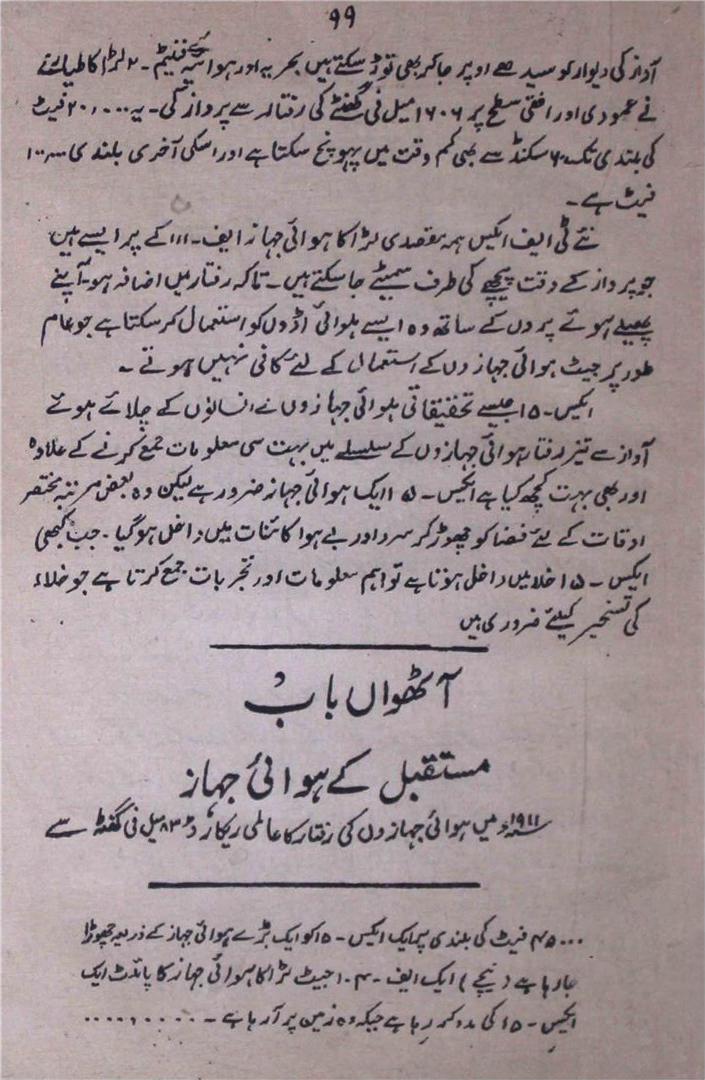 ۹۹
آواز کی دیوار کو سیدھے اوپر جاکر بھی توڑ سکتے ہیں بحریہ اور ہوائیہ کے فنیٹم ۔ ۲ لڑاکا طیارے
نے عمودی اور افقی سطح پر ۱۶۰۶ میل فی گھنٹے کی رفتار سے پرواز کی ۔ یہ ۲۰،۰۰۰ فیٹ
کی بلندی تک ۶۰ سکنڈ سے بھی کم وقت میں پہونچ سکتا ہے اور اسکی آخری بلندی ۱۰۰۰۰۰
فیٹ ہے ۔
نئے ٹی ایف ایکس ہمہ مقصدی لڑاکا ہوائی جہاز ایف ۔ ۱۱۱ کے پر ایسے ہیں
جو پرواز کے وقت پیچھے کی طرف سمیٹے جا سکتے ہیں ۔ تاکہ رفتار میں اضافہ ہو ۔ اپنے
پھیلے ہوئے پروں کے ساتھ وہ ایسے ہوائی اڈوں کو استعمال کر سکتا ہے جو عام
طور پر جیٹ ہوائی جہازوں کے استعمال کے لئے کافی نہیں ہوتے ۔
ایکس ۔ ۱۵ جیسے تحقیقاتی ہوائی جہازوں نے انسانوں کے چلائے ہوئے
آواز سے تیز رفتار ہوائی جہازوں کے سلسلے میں بہت سی معلومات جمع کرنے کے علاوہ
اور بھی بہت کچھ کیا ہے ایکس ۔ ۱۵ ایک ہوائی جہاز ضرور ہے لیکن وہ بعض مرتبہ مختصر
اوقات کے لئے فضا کو چھوڑ کر سرد اور بے ہوا کائنات میں داخل ہو گیا ۔ جب کبھی
ایکس ۔ ۱۵ خلا میں داخل ہوتا ہے تو اہم معلومات اور تجربات جمع کرتا ہے جو خلاء
کی تسخیر کیلئے ضروری ہیں
آٹھواں باب
مستقبل کے ہوائی جہاز
۱۹۱۱ء میں ہوائی جہازوں کی رفتار کا عالمی ریکارڈ ۸۳ میل فی گھنٹہ سے
۴۵۰۰۰ فیٹ کی بلندی پر ایک ایکس ۔ ۱۵ کو ایک بڑے ہوائی جہاز کے ذریعہ چھوڑا
جارہا ہے (نیچے) ایک ایف ۔ ۱۰۴ جیٹ لڑاکا ہوائی جہاز کا پائلٹ ایک
ایکس ۔ ۱۵ کی مدد کر رہا ہے جبکہ وہ زمین پر آرہا ہے ۔ ۔ ۔ ۔ ۔ ۔ ۔ ۔ ۔ ۔